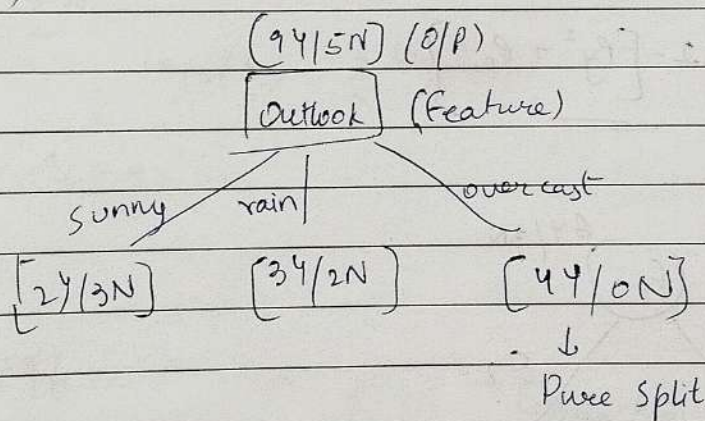 [9Y/5N] (O/P)
Outlook (Feature)
sunny rain overcast
[2Y/3N] [3Y/2N] [4Y/0N]
↓
Pure Split